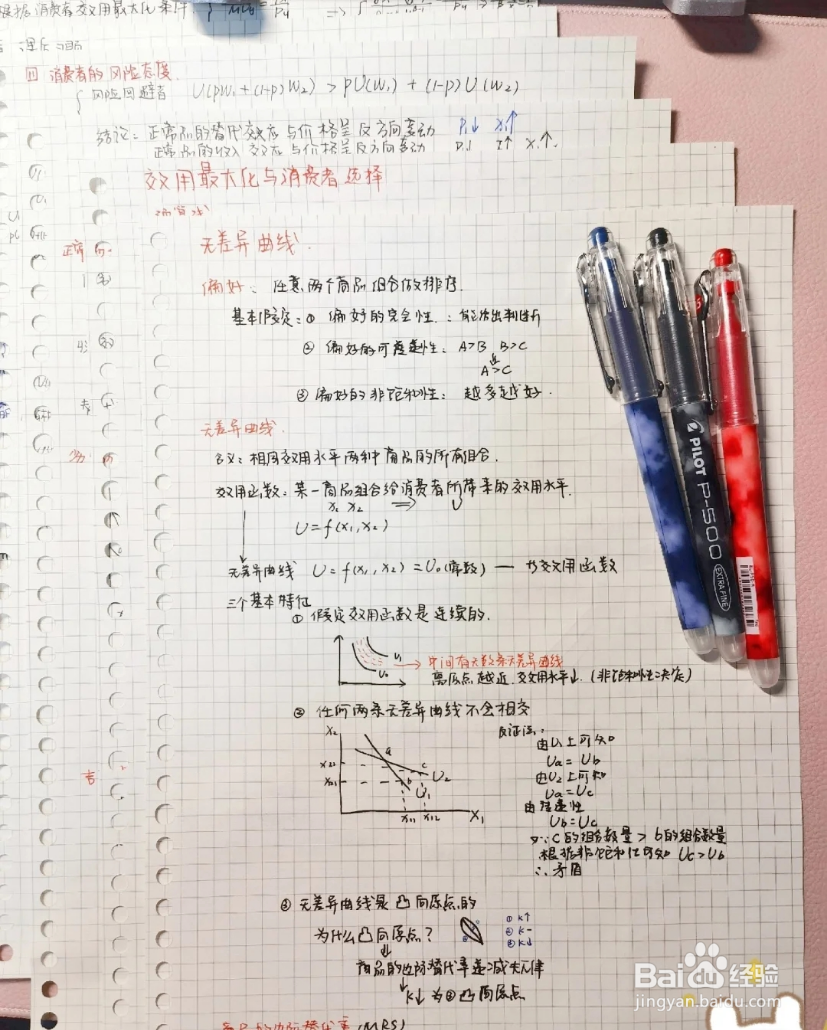 根据消费者效用最大化条件
四 消费者的风险态度
风险回避者 U(pW₁+(1-p)W₂) > pU(W₁)+(1-p)U(W₂)
结论：正常品的替代效应与价格呈反方向变动 P₁↓ X₁↑
正常品的收入效应与价格呈反方向变动 P↓ I↑ X₁↑.
效用最大化与消费者选择
无差异曲线.
偏好：任意两个商品组合做排序.
基本假定：① 偏好的完全性：能够作出判断
② 偏好的可传递性：A>B B>C
⇓
A>C
③ 偏好的非饱和性：越多越好.
无差异曲线.
含义：相同效用水平两种商品的所有组合.
效用函数：某一商品组合给消费者所带来的效用水平.
X₁ X₂ ⇒ U
U=f(X₁,X₂)
无差异曲线 U=f(X₁,X₂)=U₀(常数) — 等效用函数
三个基本特征
① 假定效用函数是连续的.
U₁
U₀
→ 中间有无数条无差异曲线
离原点越近,效用水平↓.(非饱和性决定)
② 任何两条无差异曲线不会相交
X₂
a
c
b
U₂
U₁
X₁
反证法：
由U₁上可知
Ua=Ub
由U₂上可知
Ua=Uc
由传递性
Ub=Uc
又∵C的组合数量>b的组合数量
根据非饱和性可知 Uc>Ub
∴矛盾
③ 无差异曲线是凸向原点的
为什么凸向原点？
① K↑
② K-
③ K↓
商品的边际替代率递减规律
K↓ 为③凸向原点
商品的边际替代率(MRS)
PILOT P-500
EXTRA FINE
Baidu 经验
jingyan.baidu.com